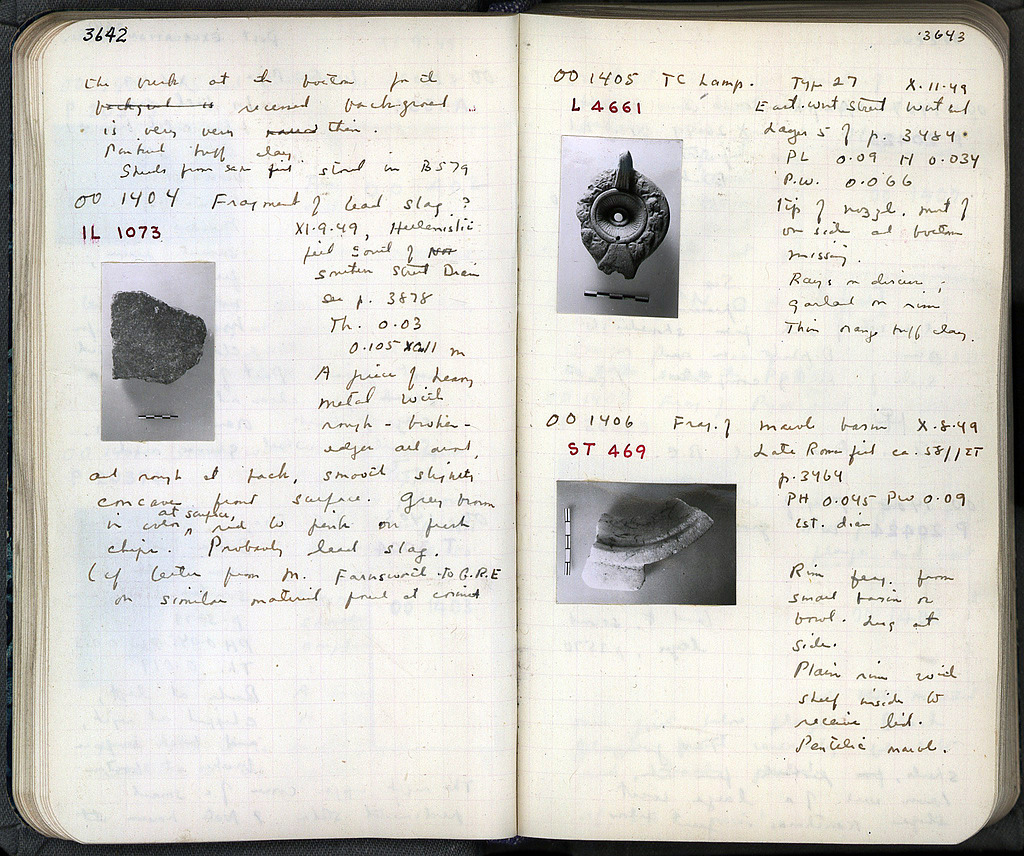 3642
the at the bottom for the
background is recessed background
is very very thin.
Partial buff clay.
Sherds from same pit stored in B579
OO 1404 Fragment of lead slag ?
IL 1073
XI·9·49, Hellenistic
fill South of
Southern Street Drain
see p. 3878
Th. 0.03
0.105 x 0.11 m
A piece of heavy
metal with
rough - broken -
edges all around,
and rough at back, smooth slightly
concave front surface. Grey brown
at surface,
in color, red to pink on fresh
chips. Probably lead slag.
(cf letter from M. Farnsworth to G.R.E
on similar material found at Corinth
3643
OO 1405 TC Lamp. Type 27 X·11·49
L 4661
East-West Street West end
Layer 5 of p. 3484
PL 0.09 H 0.034
P.W. 0.066
Tip of nozzle, most of
one side and bottom
missing.
Rays on discus ;
garland on rim
Thin orange buff clay.
OO 1406 Frag. of marble basin X·8·49
ST 469
Late Roman fill ca. 58/ΙΣΤ
p. 3464
PH 0.045 PW 0.09
est. diam
Rim frag. from
small basin or
bowl. Lug at
side.
Plain rim with
shelf inside to
receive lid.
Pentelic marble.